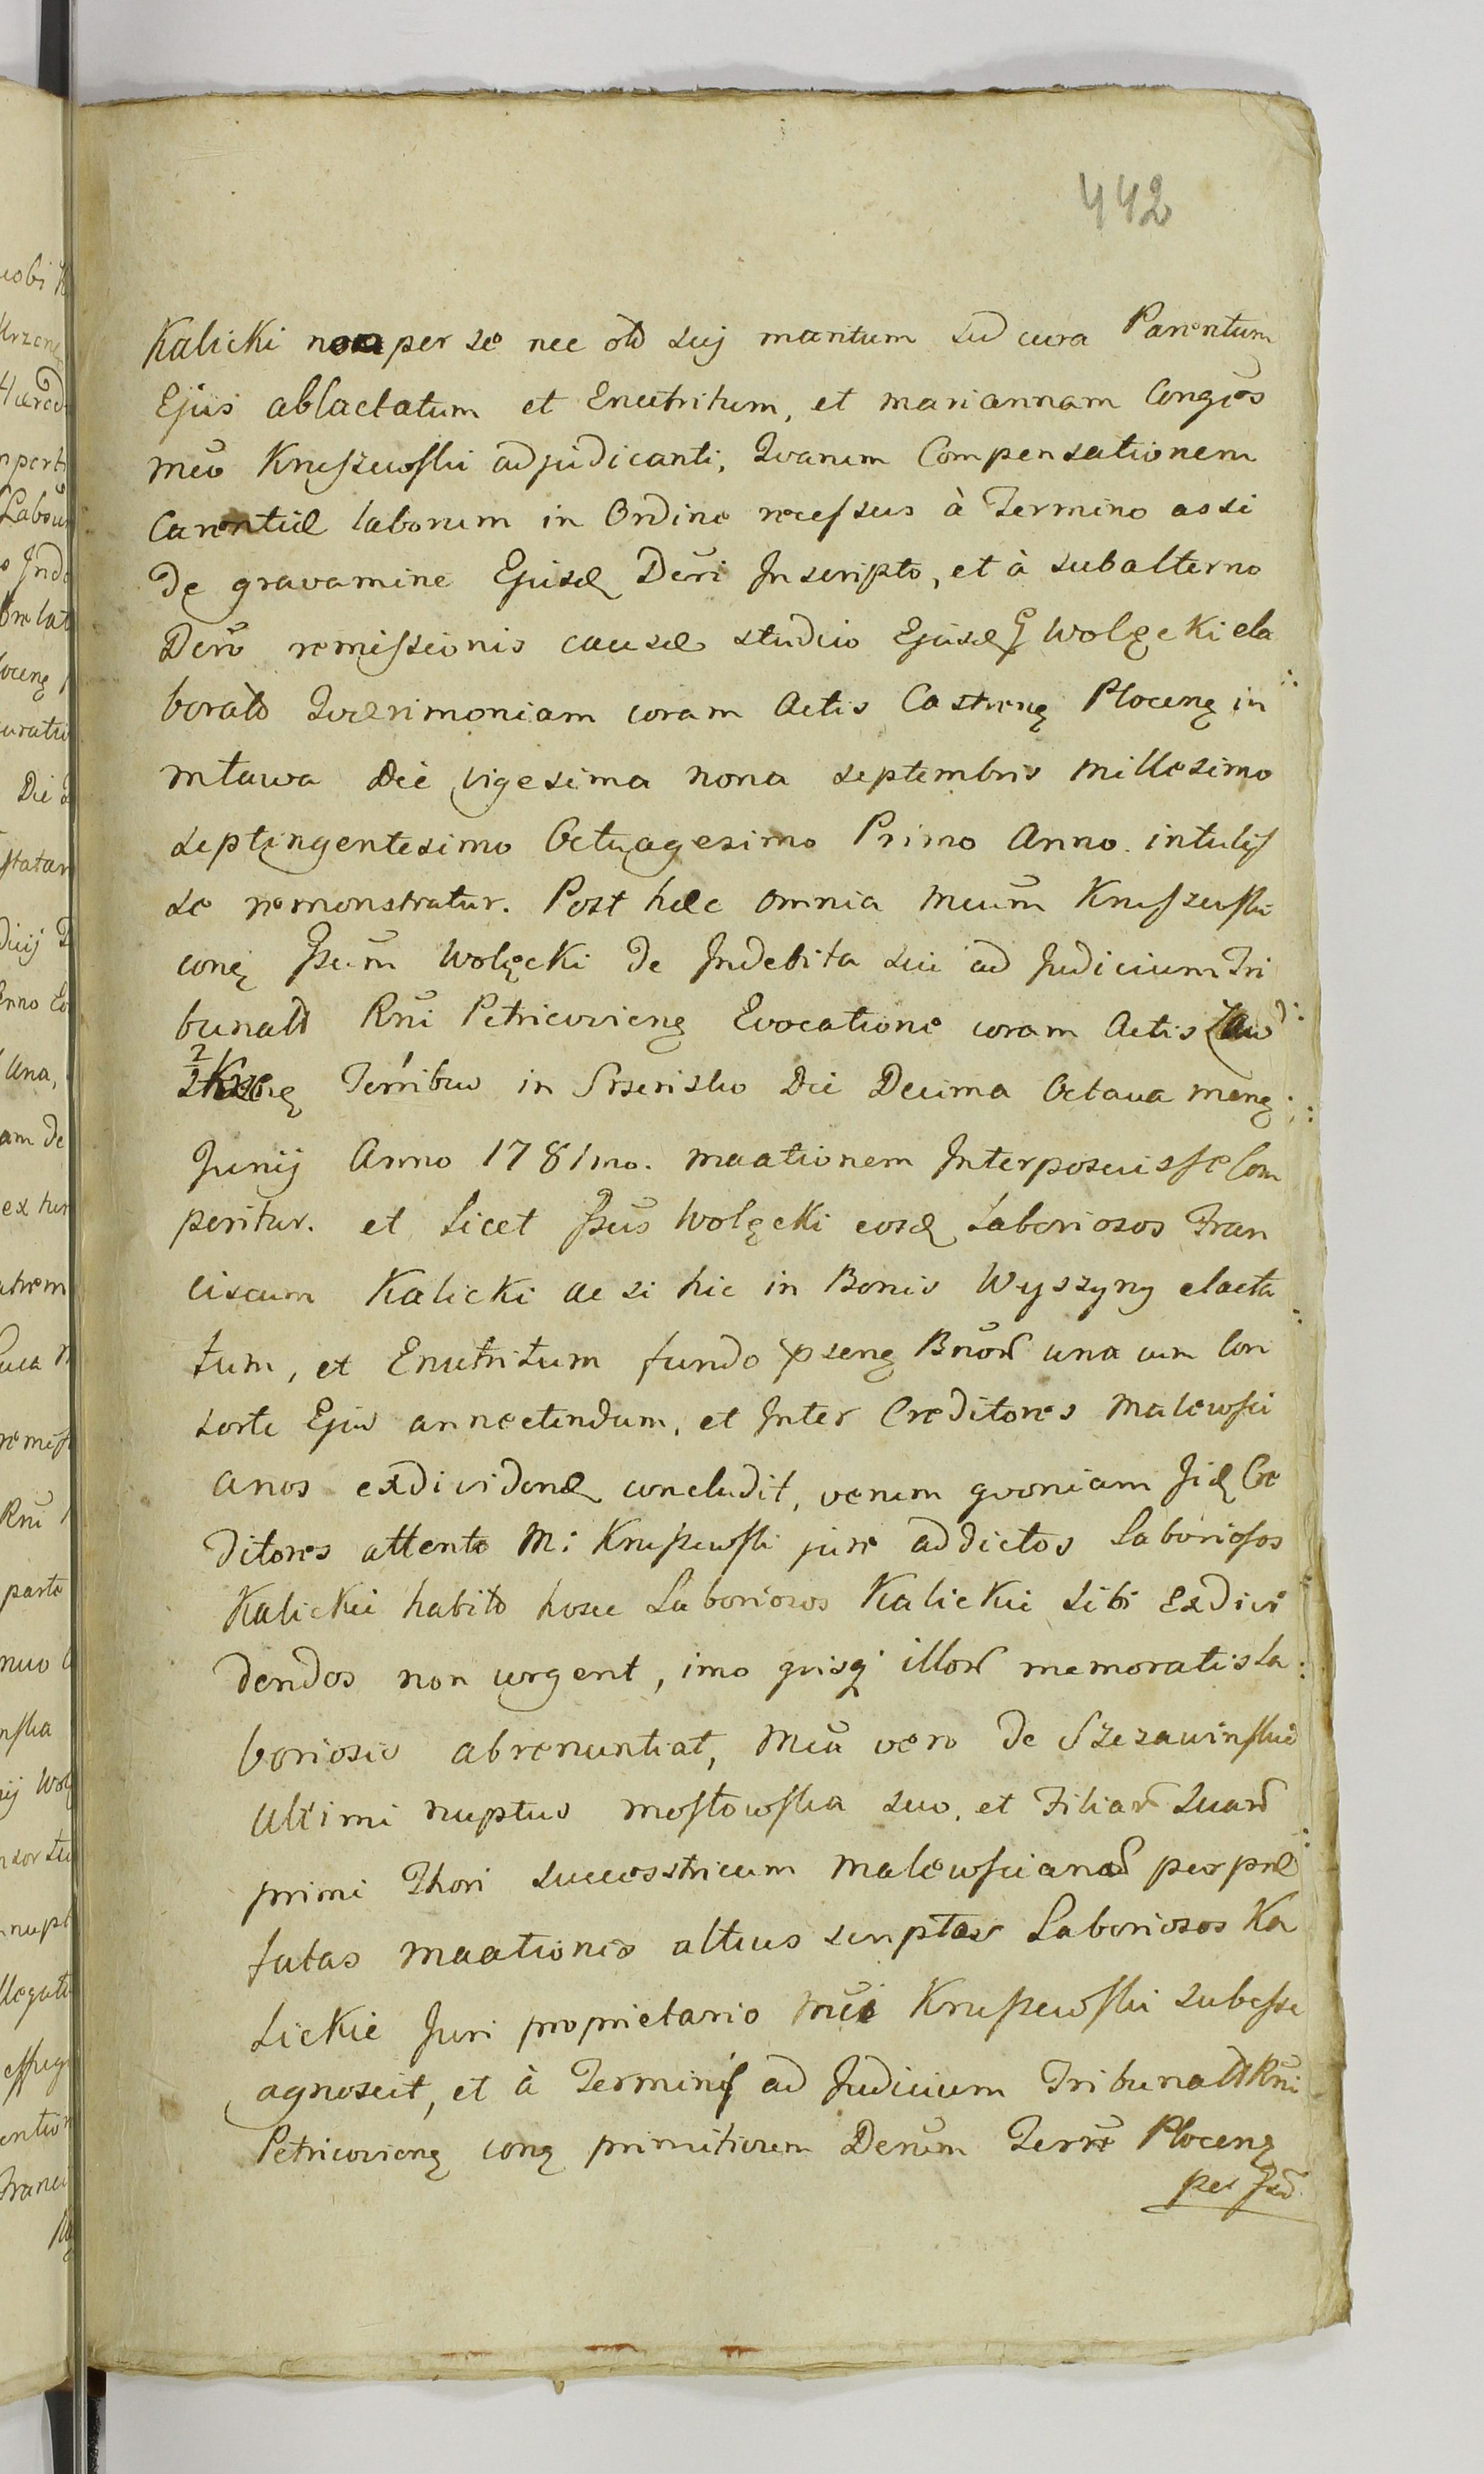 442
Kalicki non per se nec suj mantum sed cura Parentum
Ejus ablactatum et Enutritum, et mariannam Conges
meo Kruszewski adjudicanti, Qvarum Compensationem
Carentiæ laborum in Ordine recessus à Termino ac si
de gravamine Ejusd Decri Inscripto, et à subalterno
Decro remissionis causæ studio Ejusd G Wolęcki ela
borato Qværimoniam coram Actis Castreng Ploceng in
mława Die vigesima nona septembris millesimo
septingentesimo Octuagesimo Primo Anno intulis
se remonstratur. Post hæc omnia meum Kruszewski
coneg Gsum Wolęcki de Indebita sui ad Judicium Tri
bunalis Rni Petricovieng Evocatione coram Actis Zaw
skrzeng Terribus in Srzensko Die Decima Octava meng
Junij Anno 1781mo. maationem Interposuisse Com
peritur. et Licet Gsus Wolęcki eosd Laboriosos Fran
ciscum Kalicki ac si hic in Bonis Wyszyny elacta
tum, et Enutritum fundo pseng Bnor una cum Con
sorte Ejus annectendum, et Inter Creditores malewsci
anos exdividend concludit, verum qvoniam Jid Cre
ditores attento M: Kruszewski jure addictos Laboriosos
Kalickie habito hosce Laboriosos Kalickie sibi Exdivi
dendos non urgent, imo qvisq illor memoratis La
boriosis abrenuntiat, Mca vero de Szczawinskie
Ultimi nuptus mostowska suo, et Filiar Suar
primi Thori successtricum malewscianar per præ
fatas maationis altius scriptas Laboriosos Ka
lickie Juri proprietario mci Kruszewski subesse
agnoscit, et à Terminis ad Judicium Tribunalis Rni
Petricovieng cong primitivum Decrum Terre Ploceng
per Jud